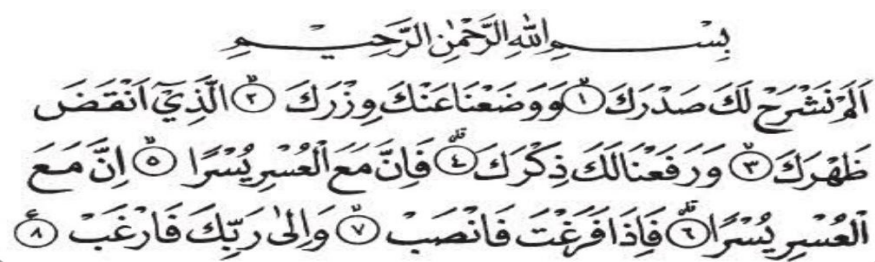 بِسْمِ اللهِ الرَّحْمٰنِ الرَّحِيْمِ
اَلَمْ نَشْرَحْ لَكَ صَدْرَكَ ۙ﴿١﴾ وَوَضَعْنَا عَنْكَ وِزْرَكَ ۙ﴿٢﴾ الَّذِيْٓ اَنْقَضَ
ظَهْرَكَ ۙ﴿٣﴾ وَرَفَعْنَا لَكَ ذِكْرَكَ ۗ﴿٤﴾ فَاِنَّ مَعَ الْعُسْرِ يُسْرًا ۙ﴿٥﴾ اِنَّ مَعَ
الْعُسْرِ يُسْرًا ۗ﴿٦﴾ فَاِذَا فَرَغْتَ فَانْصَبْ ۙ﴿٧﴾ وَاِلٰى رَبِّكَ فَارْغَبْ ﴿٨﴾